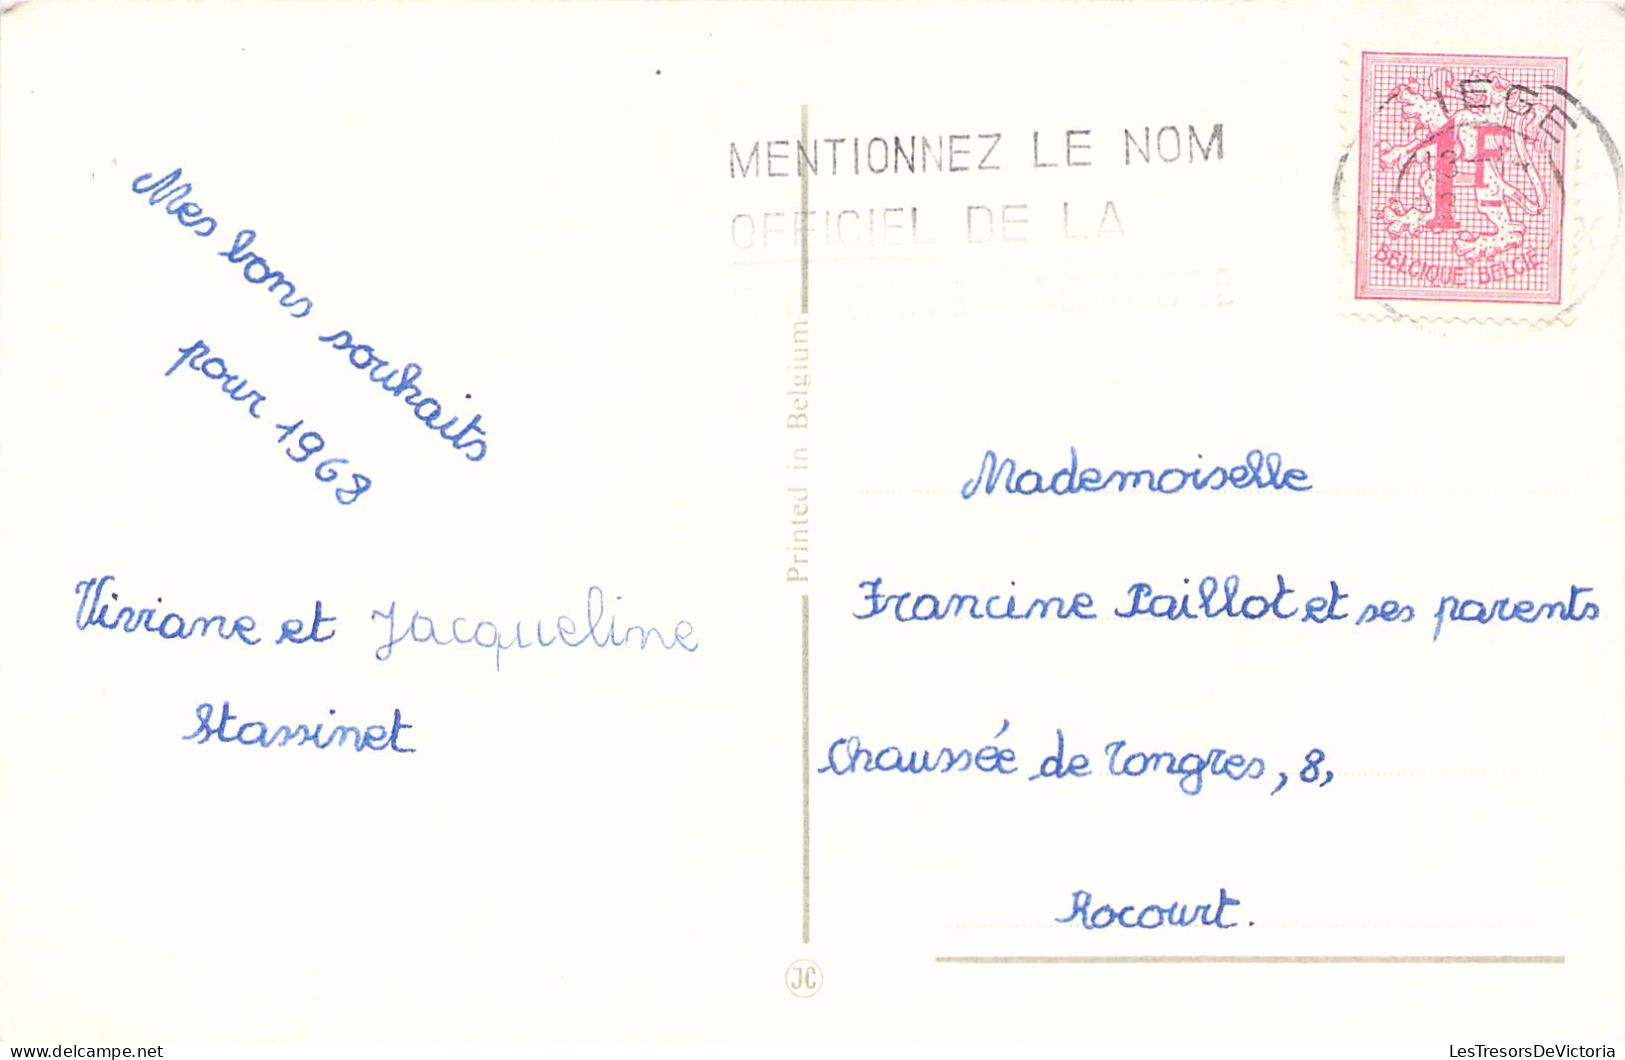 Mes bons souhaits
pour 1968
Viviane et Jacqueline
Stassinet
MENTIONNEZ LE NOM
OFFICIEL DE LA
IEGE
1F
BELGIQUE BELGIË
Printed in Belgium
JC
Mademoiselle
Francine Paillot et ses parents
Chaussée de Tongres, 8,
Rocourt.
delcampe.net
LesTresorsDeVictoria